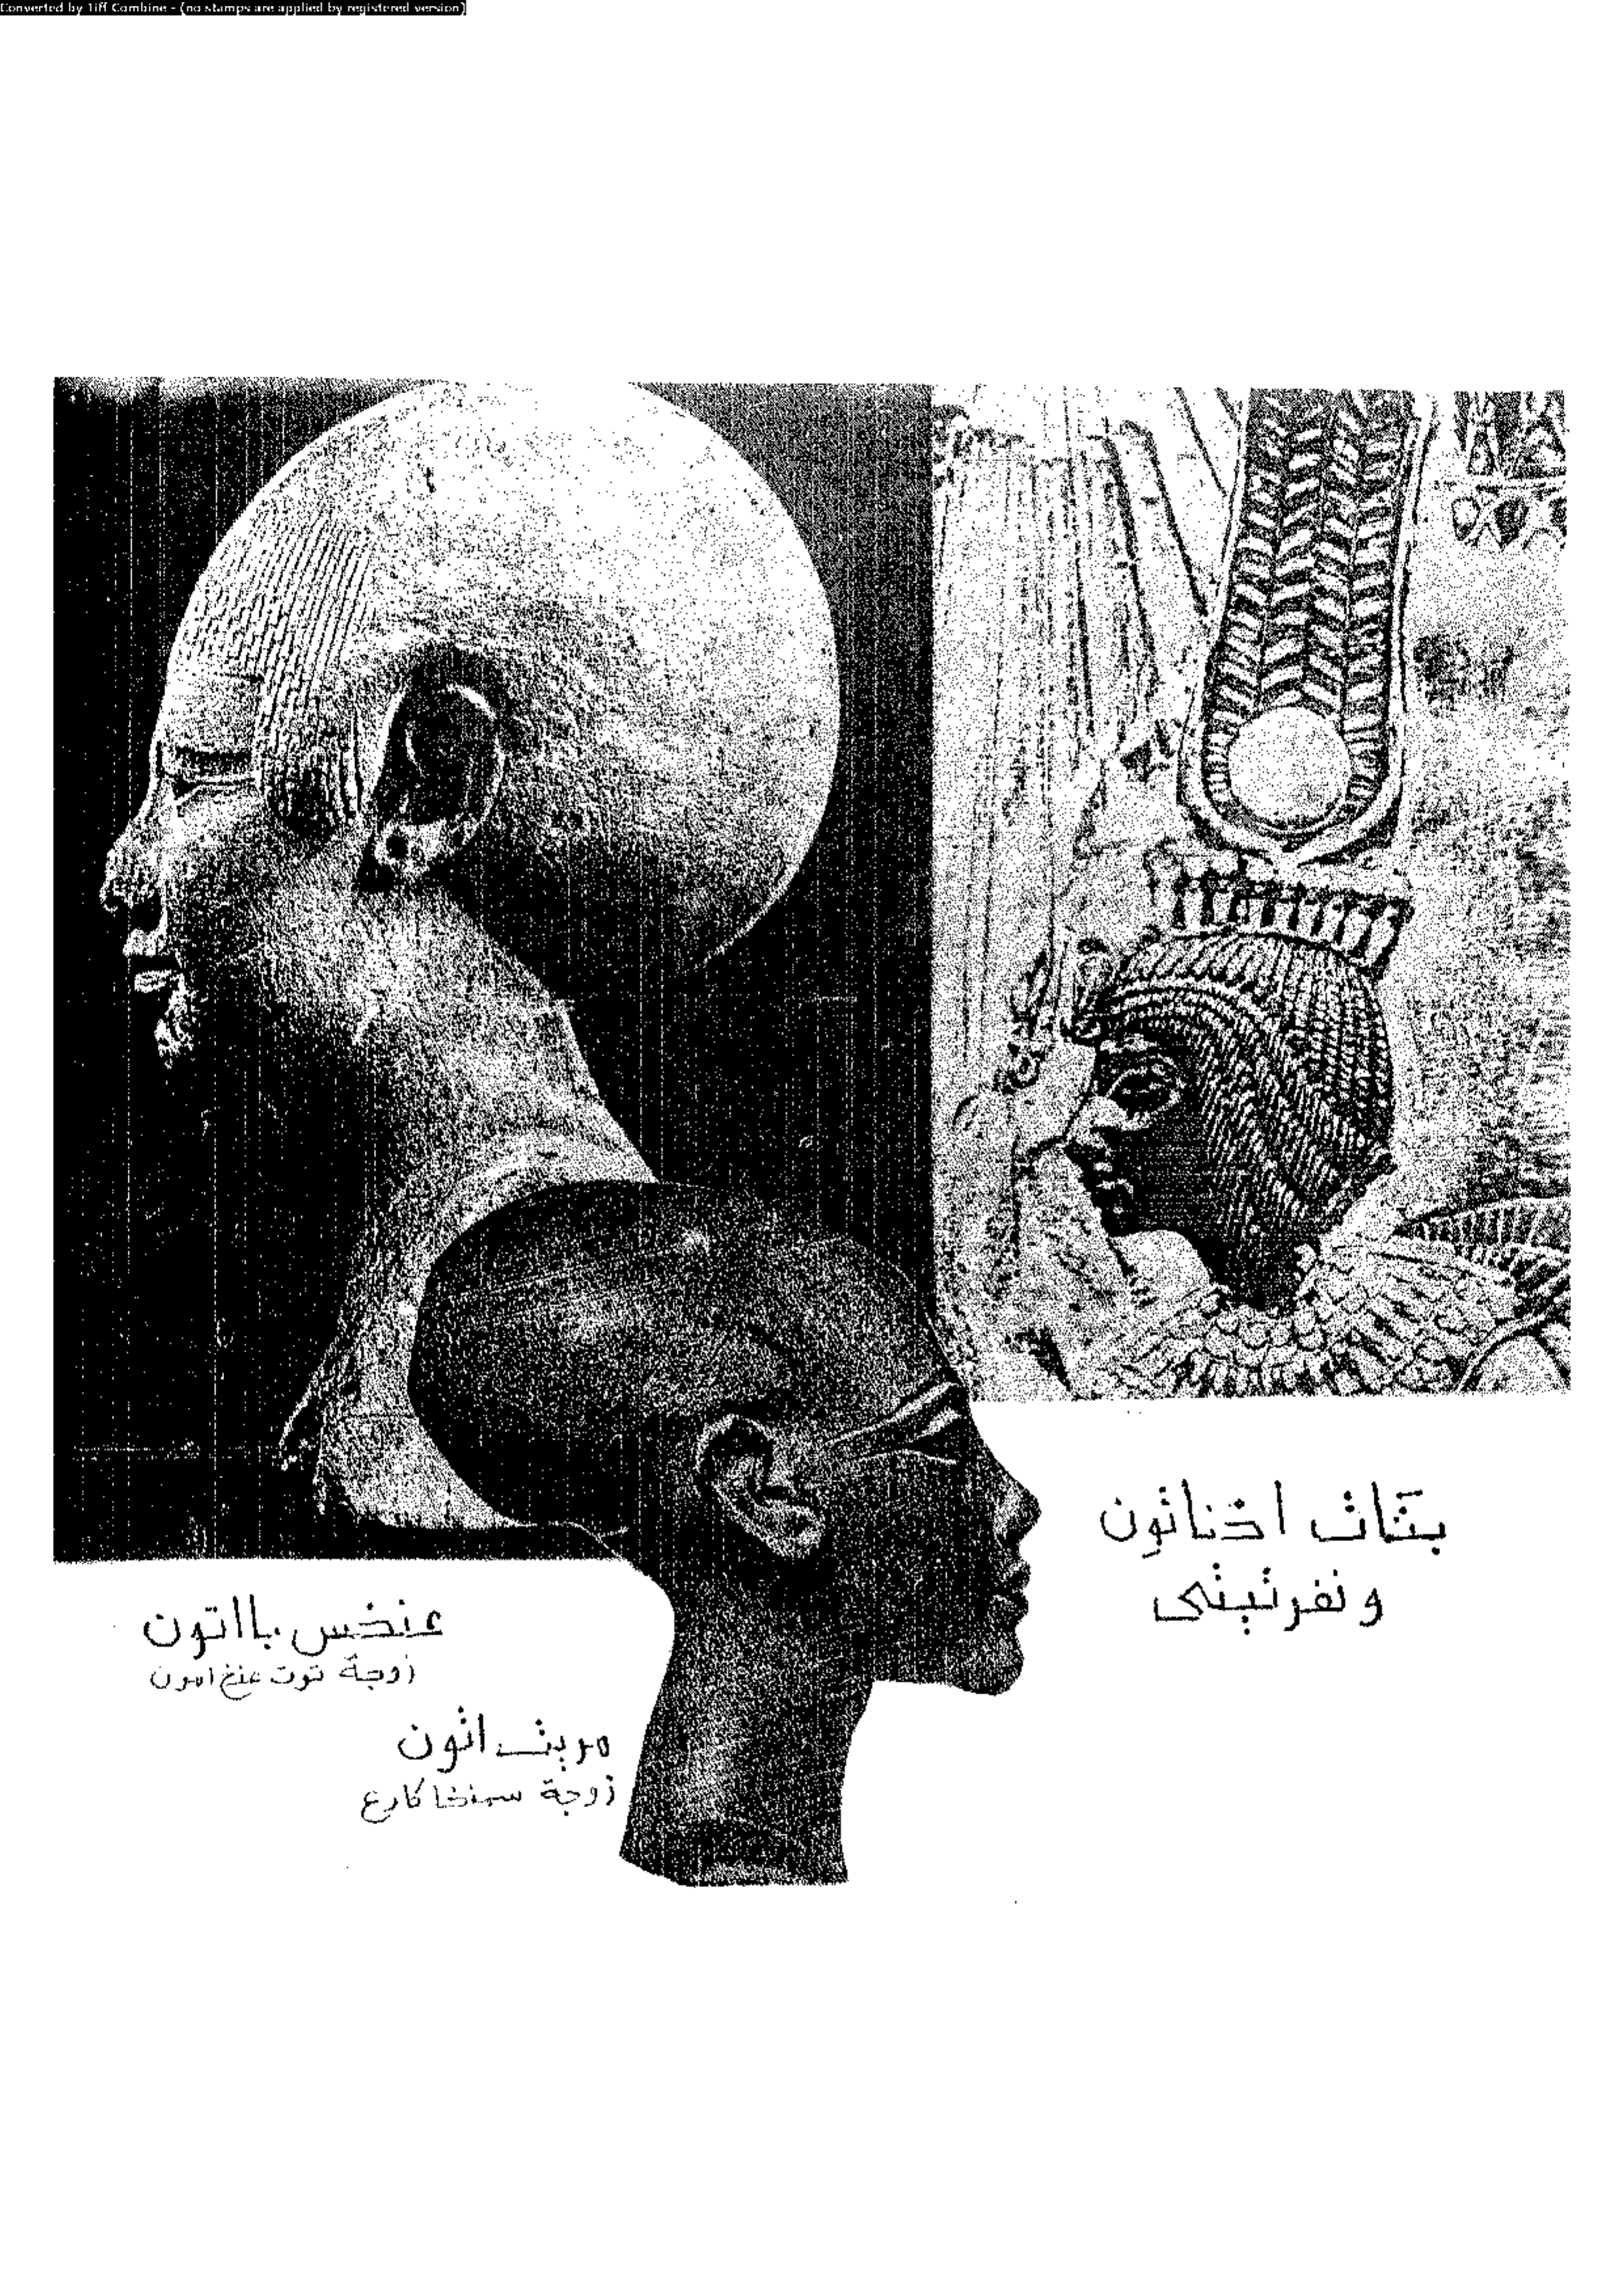 Converted by Tiff Combine - (no stamps are applied by registered version)
بنات اخناتون
ونفرتيتى
عنخس با اتون
زوجة توت عنخ امون
مريت اتون
زوجة سمنخا كارع